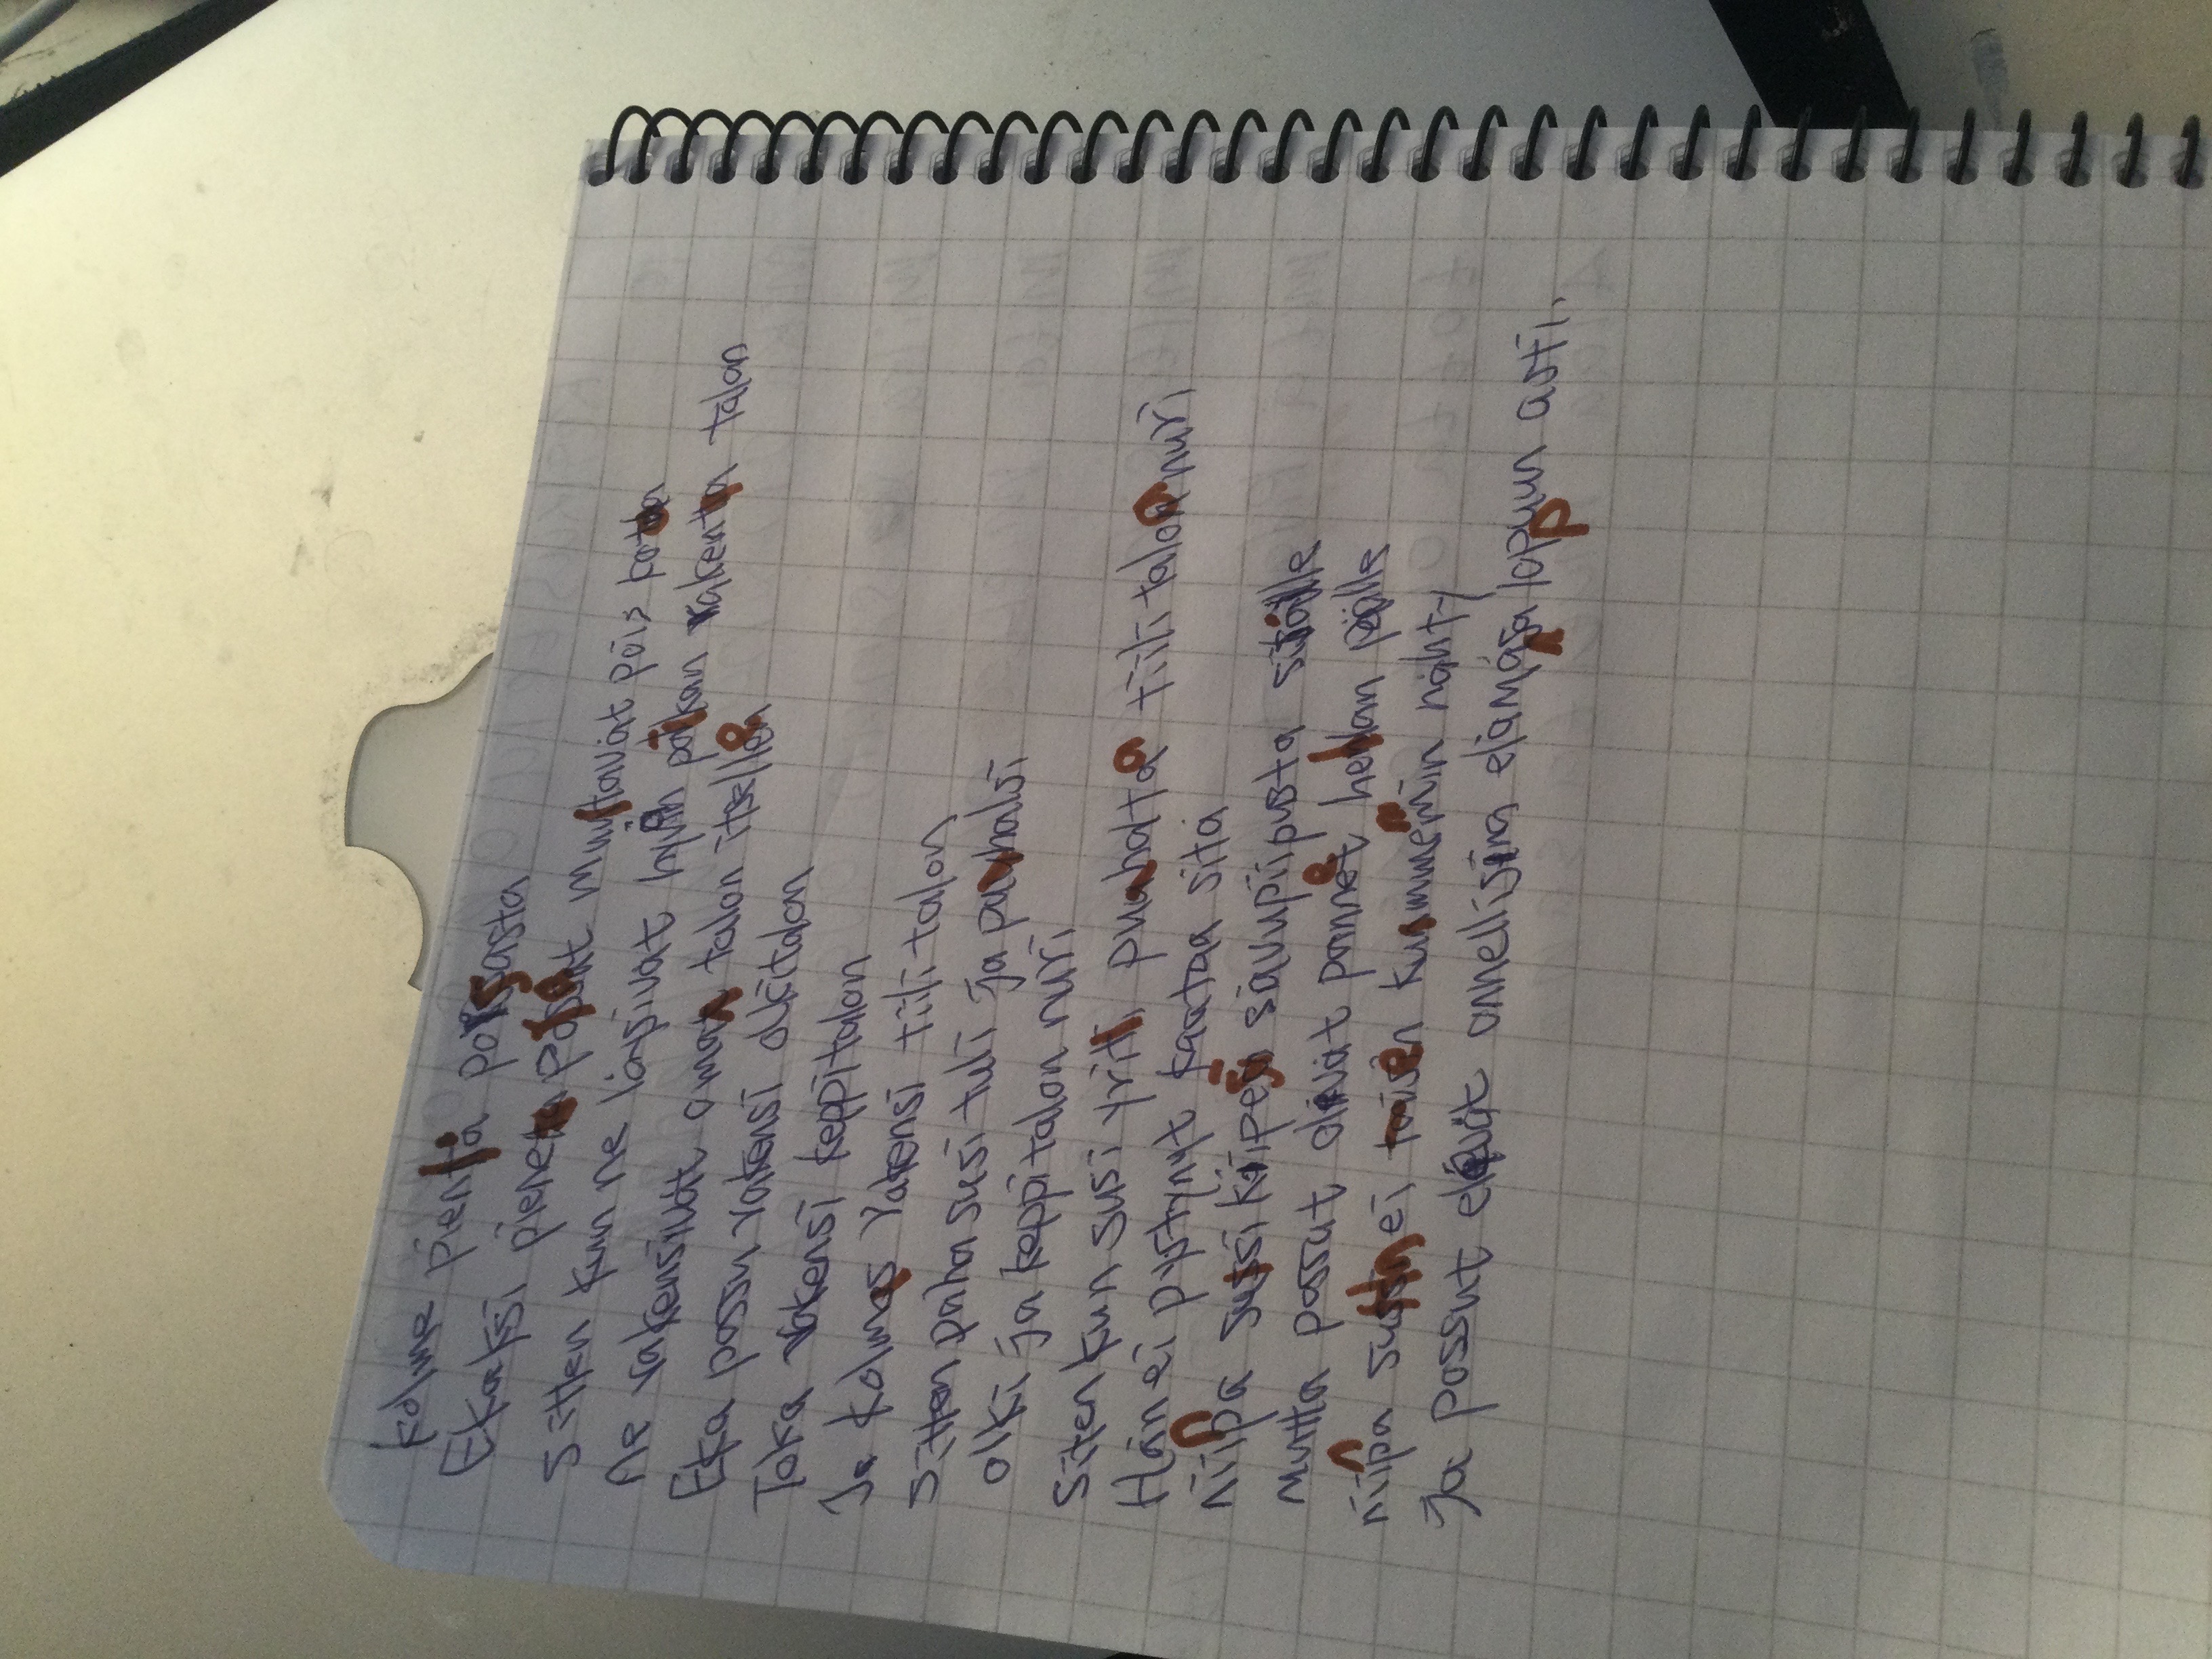 kolme pientä possasta
Ekaksi pienet possut muuttavat pois kotoa
sitten kun ne löysivät hyvän paikan rakentaa talon
Ne rakensivat oman talon itselleen
Eka possu rakensi olkitalon
Toka rakensi keppitalon
Ja kolmas rakensi tiili talon
sitten paha susi tuli ja puuhalsi
olki ja keppitalon nuri
siten kun susi yritti puuhaltaa tiili talon nuri
Hän ei pystynyt kaataa sitä
niinpa susi kiipesi savupiipusta sisälle
mutta possut olivat panneet hellan päälle
niinpa sutta ei toisen kummemmin nähty
Ja possut elivät onnellisina elämänsa loppuun asti.